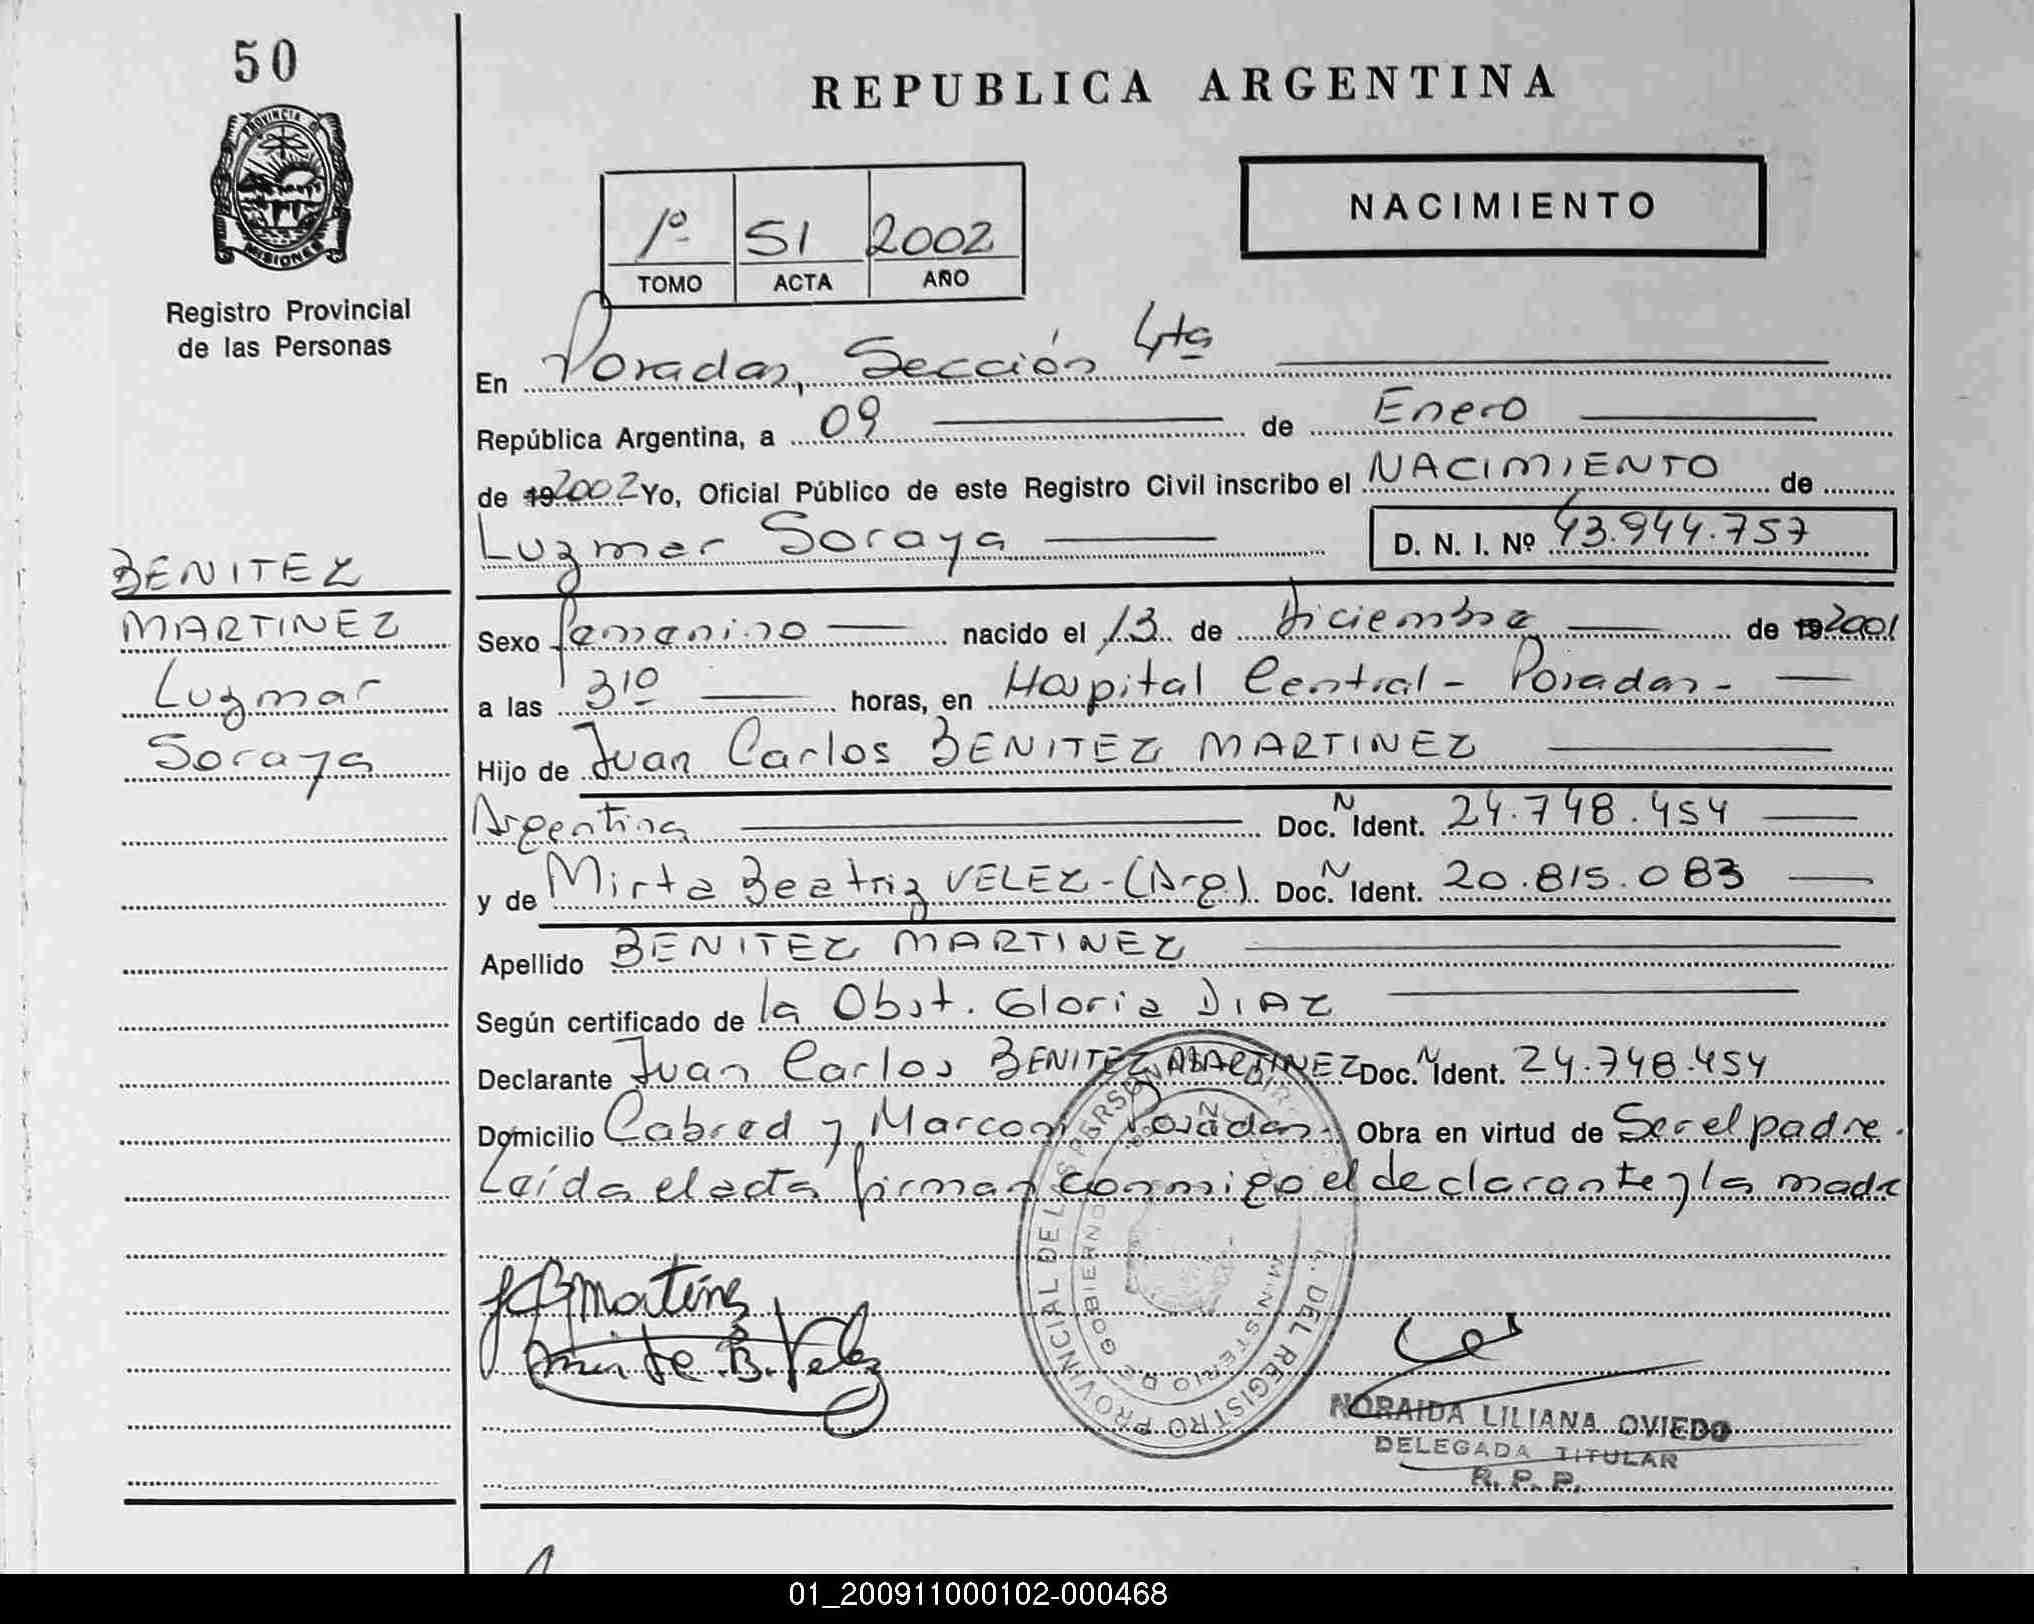 50
PROVINCIA DE
MISIONES
Registro Provincial
de las Personas
REPUBLICA ARGENTINA
NACIMIENTO
1º 51 2002
TOMO ACTA AÑO
En Posadas, Sección 4ta
República Argentina, a 09 de Enero
de 19 2002 Yo, Oficial Público de este Registro Civil inscribo el NACIMIENTO de
Luzmar Soraya D. N. I. Nº 43.944.757
BENITEZ
MARTINEZ
Luzmar
Soraya
Sexo femenino nacido el 13 de Diciembre de 19 2001
a las 3 10 horas, en Hospital Central - Posadas -
Hijo de Juan Carlos BENITEZ MARTINEZ
Argentina Doc. N Ident. 24.748.454
y de Mirta Beatriz VELEZ - (Arg). Doc. N Ident. 20.815.083
Apellido BENITEZ MARTINEZ
Según certificado de la Obst. Gloria DIAZ
Declarante Juan Carlos BENITEZ MARTINEZ Doc. N Ident. 24.748.454
Domicilio Cabred y Marconi Posadas. Obra en virtud de Ser el padre.
Leída el acta firman conmigo el declarante y la madre
JCBMartinez
Mirta B. Velez
DEL REGISTRO PROVINCIAL DE LAS PERSONAS
MINISTERIO DE GOBIERNO
NORAIDA LILIANA OVIEDO
DELEGADA TITULAR
R. P. P.
01_200911000102-000468